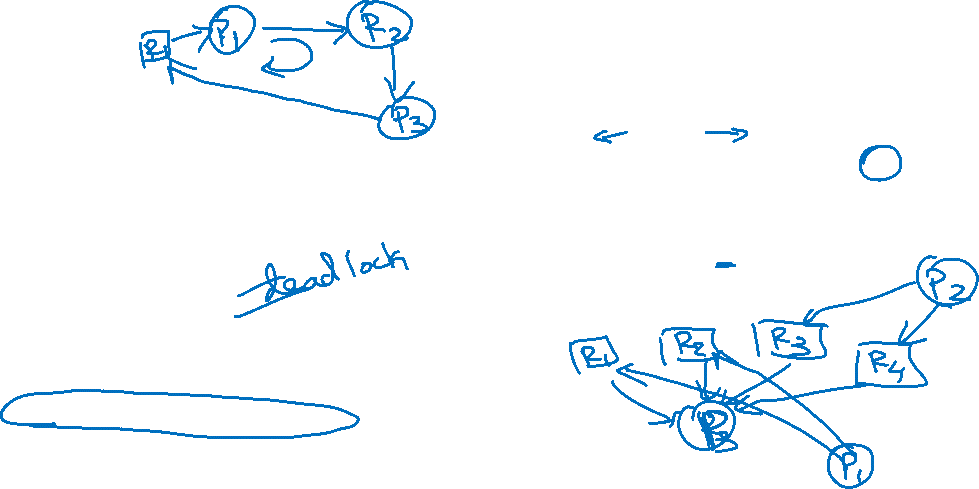 R1 P1 R2
P3
deadlock
P2
R1 R2 R3 R4
P3
P1